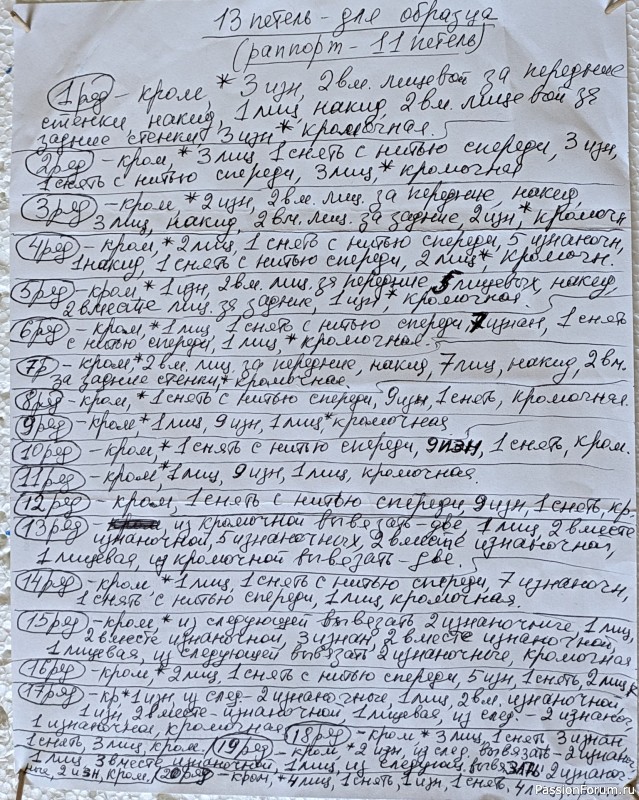 13 петель - для образца
(раппорт - 11 петель)
1 ряд - кром, * 3 изн, 2 вм. лицевой за передние
стенки, накид, 1 лиц, накид, 2 вм. лицевой за
задние стенки, 3 изн * кромочная.
2 ряд - кром, * 3 лиц, 1 снять с нитью спереди, 3 изн,
1 снять с нитью спереди, 3 лиц, * кромочная
3 ряд - кром * 2 изн, 2 вм. лиц. за передние, накид,
3 лиц, накид, 2 вм. лиц. за задние, 2 изн * кромочн
4 ряд - кром * 2 лиц, 1 снять с нитью спереди, 5 изнаночн,
1 накид, 1 снять с нитью спереди, 2 лиц * кромочн.
5 ряд - кром, * 1 изн, 2 вм. лиц. за передние 5 лицевых, накид,
2 вместе лиц. за задние, 1 изн, * кромочная.
6 ряд - кром, * 1 лиц, 1 снять с нитью спереди, 7 изнан, 1 снять
с нитью спереди, 1 лиц, * кромочная.
7 р - кром, * 2 вм. лиц. за передние, накид, 7 лиц, накид, 2 вм.
за задние стенки * кромочная.
8 ряд - кром, * 1 снять с нитью спереди, 9 изн, 1 снять, кромочная.
9 ряд - кром, * 1 лиц, 9 изн, 1 лиц * кромочная
10 ряд - кром, * 1 снять с нитью спереди, 9 изн, 1 снять, кром.
11 ряд - кром * 1 лиц, 9 изн, 1 лиц, кромочная.
12 ряд - кром, 1 снять с нитью спереди, 9 изн, 1 снять, кр
13 ряд - из кромочной вывязать две, 1 лиц, 2 вместе
изнаночной, 5 изнаночных, 2 вместе изнаночной,
1 лицевая, из кромочной вывязать - две.
14 ряд - кром * 1 лиц, 1 снять с нитью спереди, 7 изнаночн,
1 снять с нитью спереди, 1 лиц, кромочная.
15 ряд - кром * из следующей вывезать 2 изнаночные, 1 лиц,
2 вместе изнаночной, 3 изнан, 2 вместе изнаночной,
1 лицевая, из следующей вывязать 2 изнаночные, кромочная
16 ряд - кром, * 2 лиц, 1 снять с нитью спереди, 5 изн, 1 снять, 2 лиц,
17 ряд - кр * 1 изн, из след - 2 изнаночные, 1 лиц, 2 вм. изнаночной,
1 изн, 2 вместе - изнаночной, 1 лицевая, из след. - 2 изнаноч,
1 изнаночная, кромочная. 18 ряд - кром * 3 лиц, 1 снять, 3 изнан
1 снять, 3 лиц, кром. 19 ряд - кром * 2 изн, из след. вывязать - 2 изнаноч
1 лиц 3 вместе изнаночной, 1 лиц, из следующей вывязать 2 изнаноч-
ные, 2 изн, кром. 20 ряд - кром * 4 лиц, 1 снять, 1 изн, 1 снять, 4 лиц
PassionForum.ru